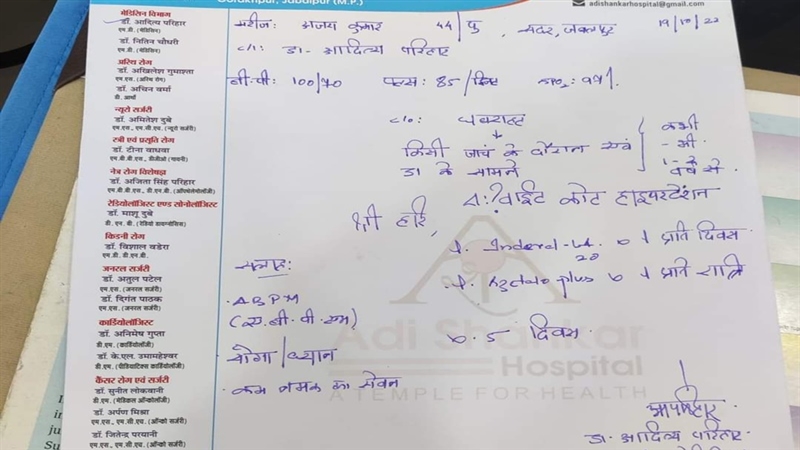 गोरखपुर, जबलपुर (M.P.)
adishankarhospital@gmail.com
मेडिसिन विभाग
डॉ. आदित्य परिहार
एम.डी. (मेडिसिन)
डॉ. नितिन चौधरी
एम.डी. (मेडिसिन)
अस्थि रोग
डॉ. अखिलेश गुमाश्ता
एम.एस. (अस्थि रोग)
डॉ. अचिन वर्मा
डी. आर्थो
न्यूरो सर्जरी
डॉ. अमितेश दुबे
एम.एस., एम.सी.एच. (न्यूरो सर्जरी)
स्त्री एवं प्रसूति रोग
डॉ. टीना वाधवा
एम.बी.बी.एस., डीजीओ (गायनी)
नेत्र रोग विशेषज्ञ
डॉ. अजिता सिंह परिहार
एम.बी.बी.एस., डी.एन.बी. (ऑफ्थेलमोलॉजी)
रेडियोलॉजिस्ट एण्ड सोनोलॉजिस्ट
डॉ. माशू दुबे
एम.डी. (रेडियो डायग्नोसिस)
किडनी रोग
डॉ. विशाल बडेरा
एम.डी. डी.एन.बी.
जनरल सर्जरी
डॉ. अतुल पटेल
एम.एस. (जनरल सर्जरी)
डॉ. दिगंत पाठक
एम.एस. (जनरल सर्जरी)
कार्डियोलॉजिस्ट
डॉ. अनिमेष गुप्ता
डी.एम. (कार्डियोलॉजी)
डॉ. के.एल. उमामहेश्वर
एम.डी. (पीडियाट्रिक्स कार्डियोलॉजी)
कैंसर रोग एवं सर्जरी
डॉ. सुनीत लोकवानी
डी.एम. (मेडिकल ऑन्कोलॉजी)
डॉ. अर्पण मिश्रा
एम.एस., एम.सी.एच. (ऑन्को सर्जरी)
डॉ. जितेन्द्र परयानी
एम.एस., एम.सी.एच. (ऑन्को सर्जरी)
मरीज: अजय कुमार 44/पु, सदर, जबलपुर 19/10/22
C/i: डा- आदित्य परिहार
बी.पी: 100/70 पल्स: 85/मिनट SPO2: 99%
c/o: घबराहट
किसी जाचं के दौरान एवं
डा के सामने
कभी
-भी
1-2
वर्ष से
Δ:? वाईट कोट हाइपरटेंशन
श्री हरि,
Inderal-LA 20 1 प्रति दिवस
plus 1 प्रति रात्रि
5 दिवस
सलाह:
- ABPM
(ए.बी.पी.एम)
योगा/ध्यान
- कम नमक का सेवन
Adi Shankar
Hospital
A TEMPLE FOR HEALTH
डा. आदित्य परिहार